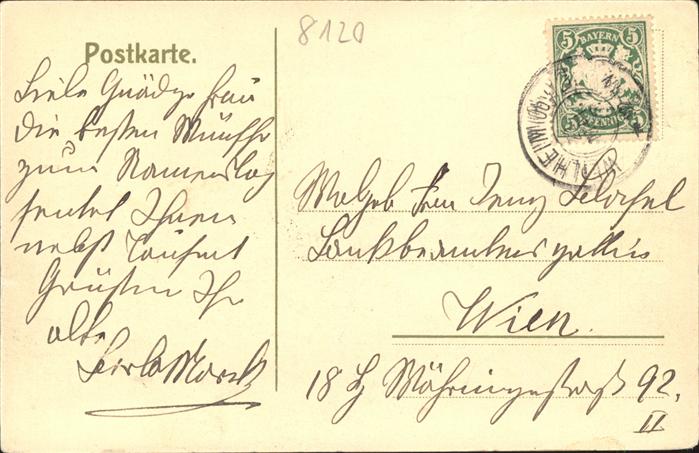 8120
Postkarte.
5 BAYERN 5
5 PFENNIG 5
Liebe Gnädge Frau
die besten Wünsche
zum Namenstag
sendet Ihnen
nebst tausend
Grüßen Ihr
alter
Wolgeb Frau Jenny
Bankbeamtensgattin
Wien.
18 Währingerstraße 92.
II